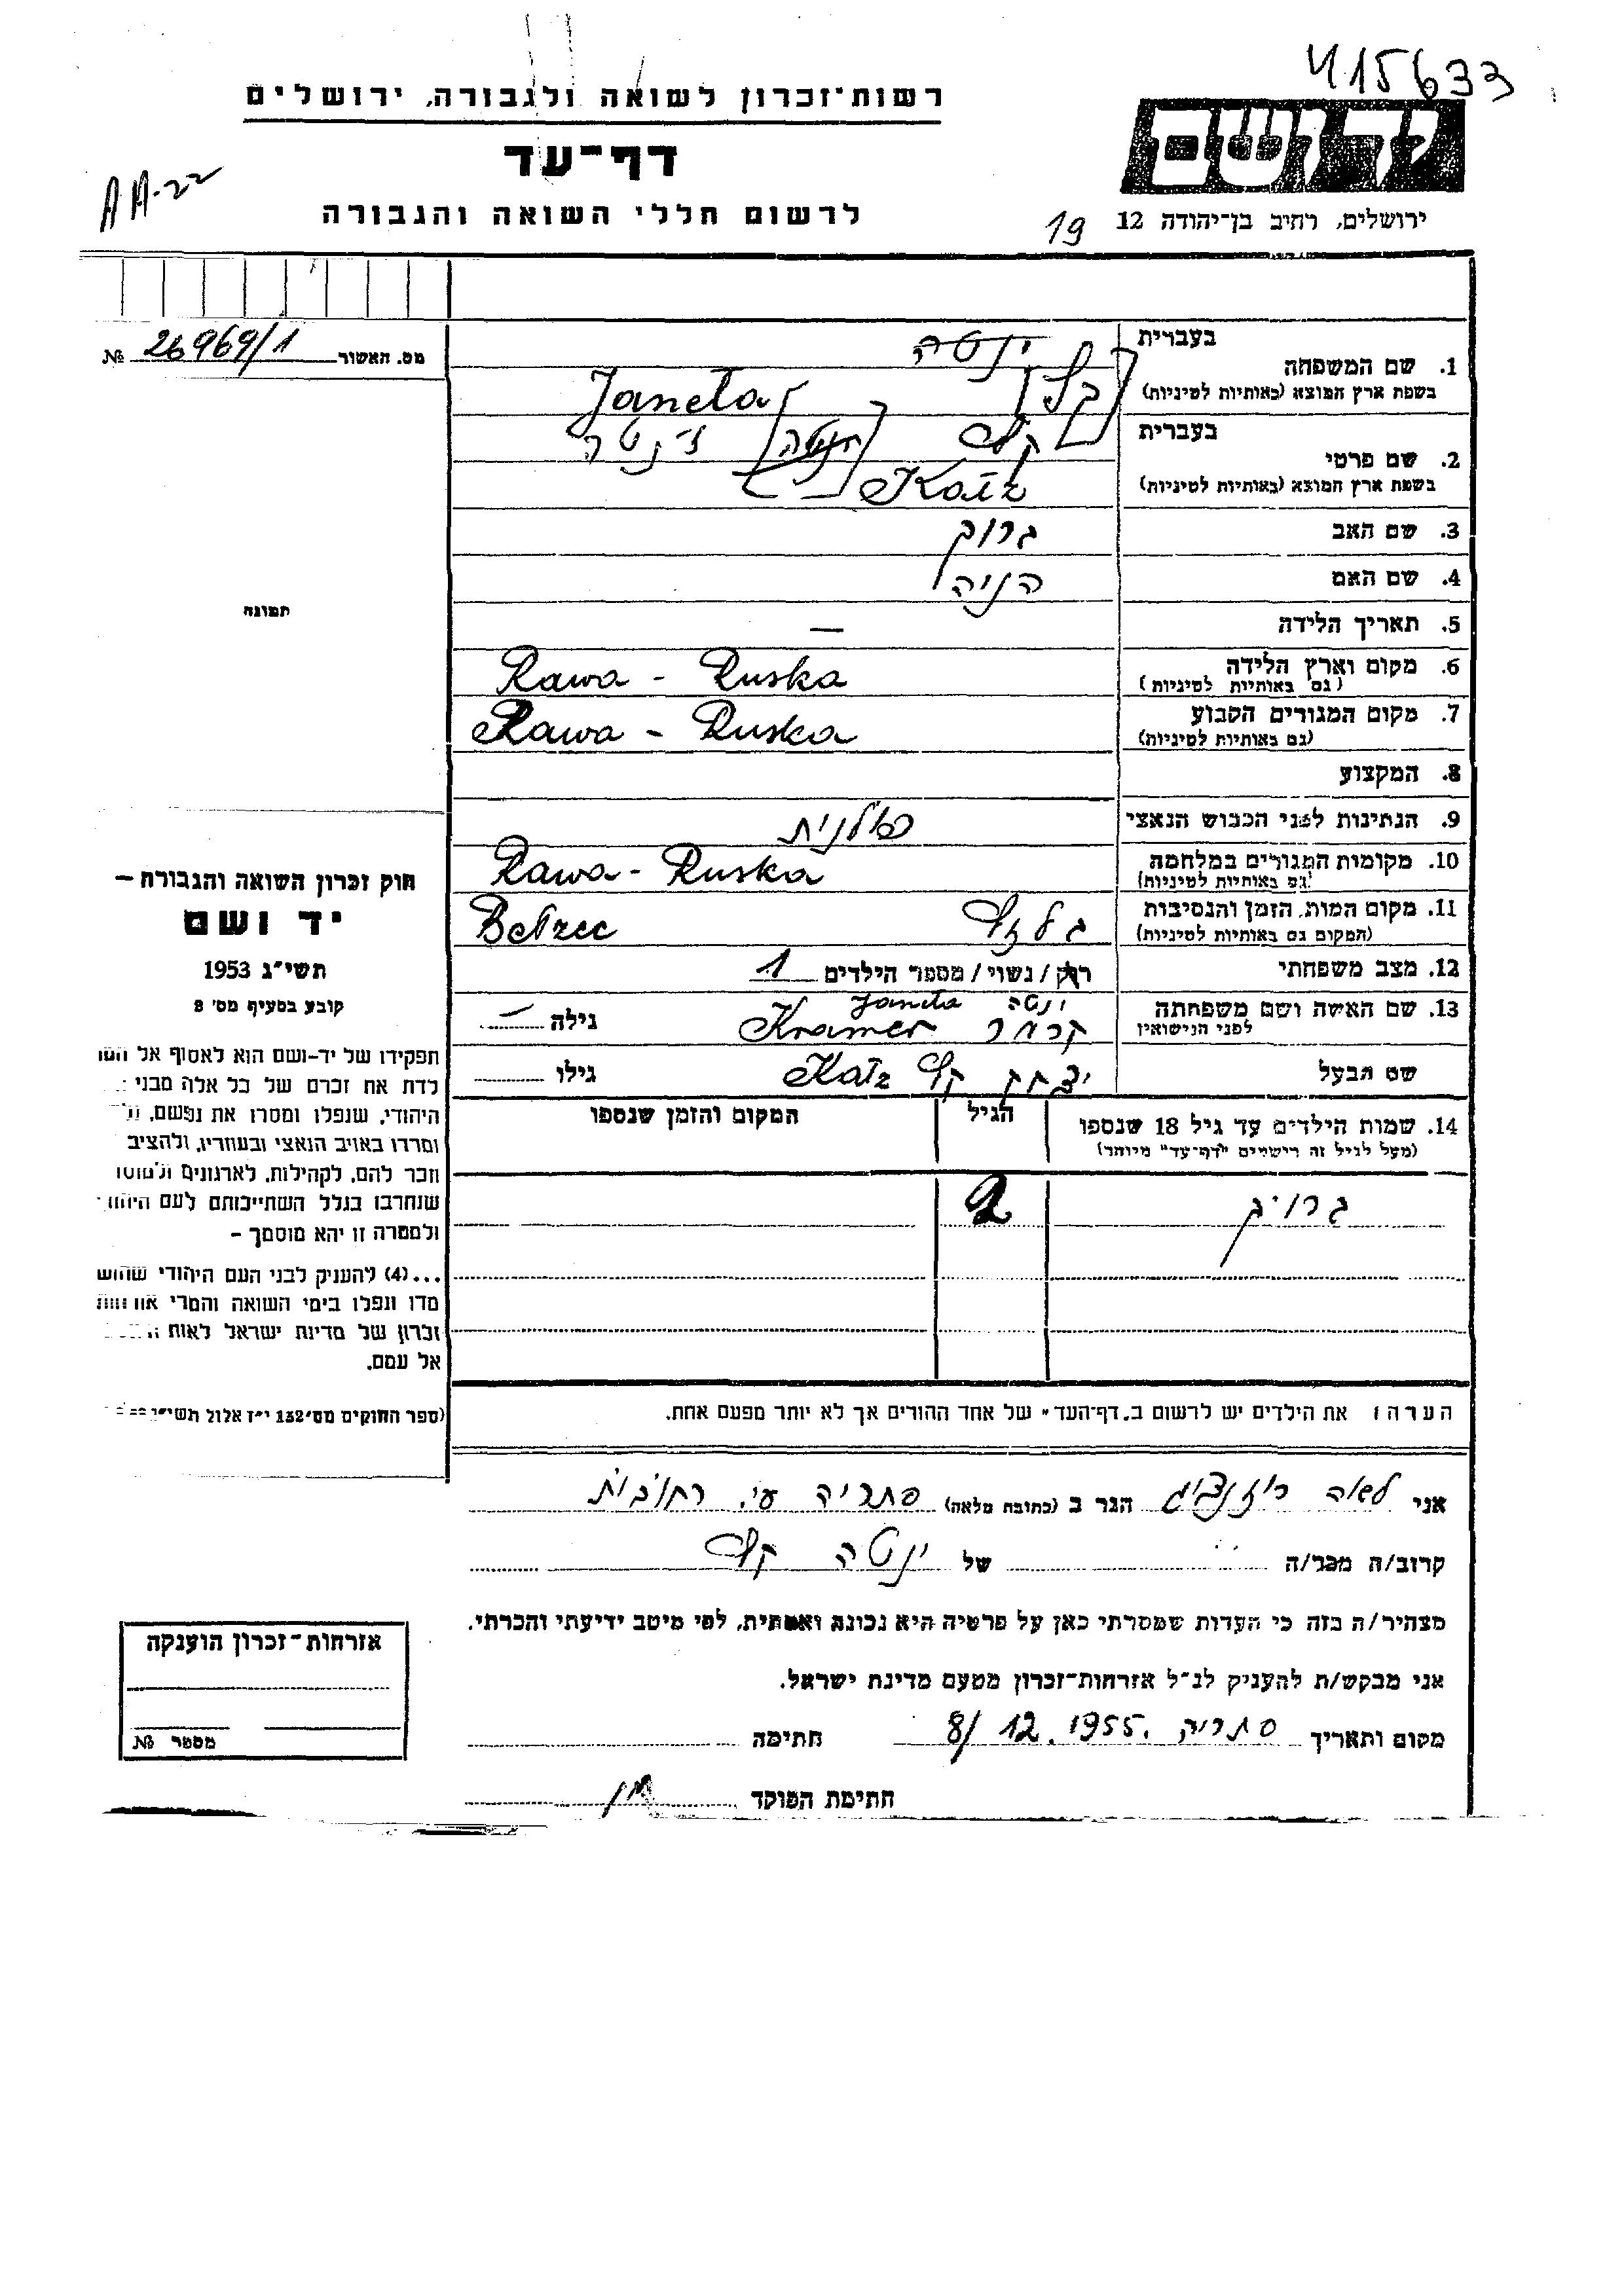 415633
רשות־זכרון לשואה ולגבורה, ירושלים
דף־עד
לרשום חללי השואה והגבורה
AA-22
יד ושם
ירושלים, רחוב בן־יהודה 12
19
מס. האשור 26969/1 №
בעברית ינטה
1. שם המשפחה
בשפת ארץ המוצא (באותיות לטיניות) Janeta
בעברית כץ ז'נטה
2. שם פרטי
בשפת ארץ המוצא (באותיות לטיניות) Katz
3. שם האב ברוך
4. שם האם הניה
תמונה
5. תאריך הלידה —
6. מקום וארץ הלידה Rawa - Ruska
(גם באותיות לטיניות)
7. מקום המגורים הקבוע Rawa - Ruska
(גם באותיות לטיניות)
8. המקצוע
9. הנתינות לפני הכבוש הנאצי פולנית
10. מקומות המגורים במלחמה Rawa - Ruska
(גם באותיות לטיניות)
11. מקום המות, הזמן והנסיבות בלזץ Bełzec
(המקום גם באותיות לטיניות)
12. מצב משפחתי רוק/נשוי/מספר הילדים 1
13. שם האשה ושם משפחתה ינטה Janeta
לפני הנישואין קרמר Kramer גילה —
שם הבעל יצחק כץ Katz גילו
14. שמות הילדים עד גיל 18 שנספו הגיל המקום והזמן שנספו
(מעל לגיל זה רישמים "דף־עד" מיוחד)
ברוך 2
הערה: את הילדים יש לרשום ב"דף־העד" של אחד ההורים אך לא יותר מפעם אחת.
חוק זכרון השואה והגבורה —
יד ושם
תשי"ג 1953
קובע בסעיף מס' 8
תפקידו של יד-ושם הוא לאסוף אל
לדת את זכרם של כל אלה מבני
היהודי, שנפלו ומסרו את נפשם,
ומרדו באויב הנאצי ובעוזריו, ולהציב
וזכר להם, לקהילות, לארגונים
שנחרבו בגלל השתייכותם לעם
ולמטרה זו יהא מוסמך –
...(4) להעניק לבני העם היהודי
מדו ונפלו בימי השואה והמרי
זכרון של מדינת ישראל לאות
אל עמם.
(ספר החוקים מס' 132 י"ז אלול
אני לאה הגר ב (כתובת מלאה) סתריה ע"י רחובות
קרוב/ה מכר/ה של ינטה כץ
מצהיר/ה בזה כי העדות שמסרתי כאן על פרטיה היא נכונה ואמתית, לפי מיטב ידיעתי והכרתי.
אני מבקש/ת להעניק לנ"ל אזרחות־זכרון מטעם מדינת ישראל.
מקום ותאריך סתריה 8/12.1955. חתימה
חתימת הפוקד
אזרחות־זכרון הוענקה
מספר №